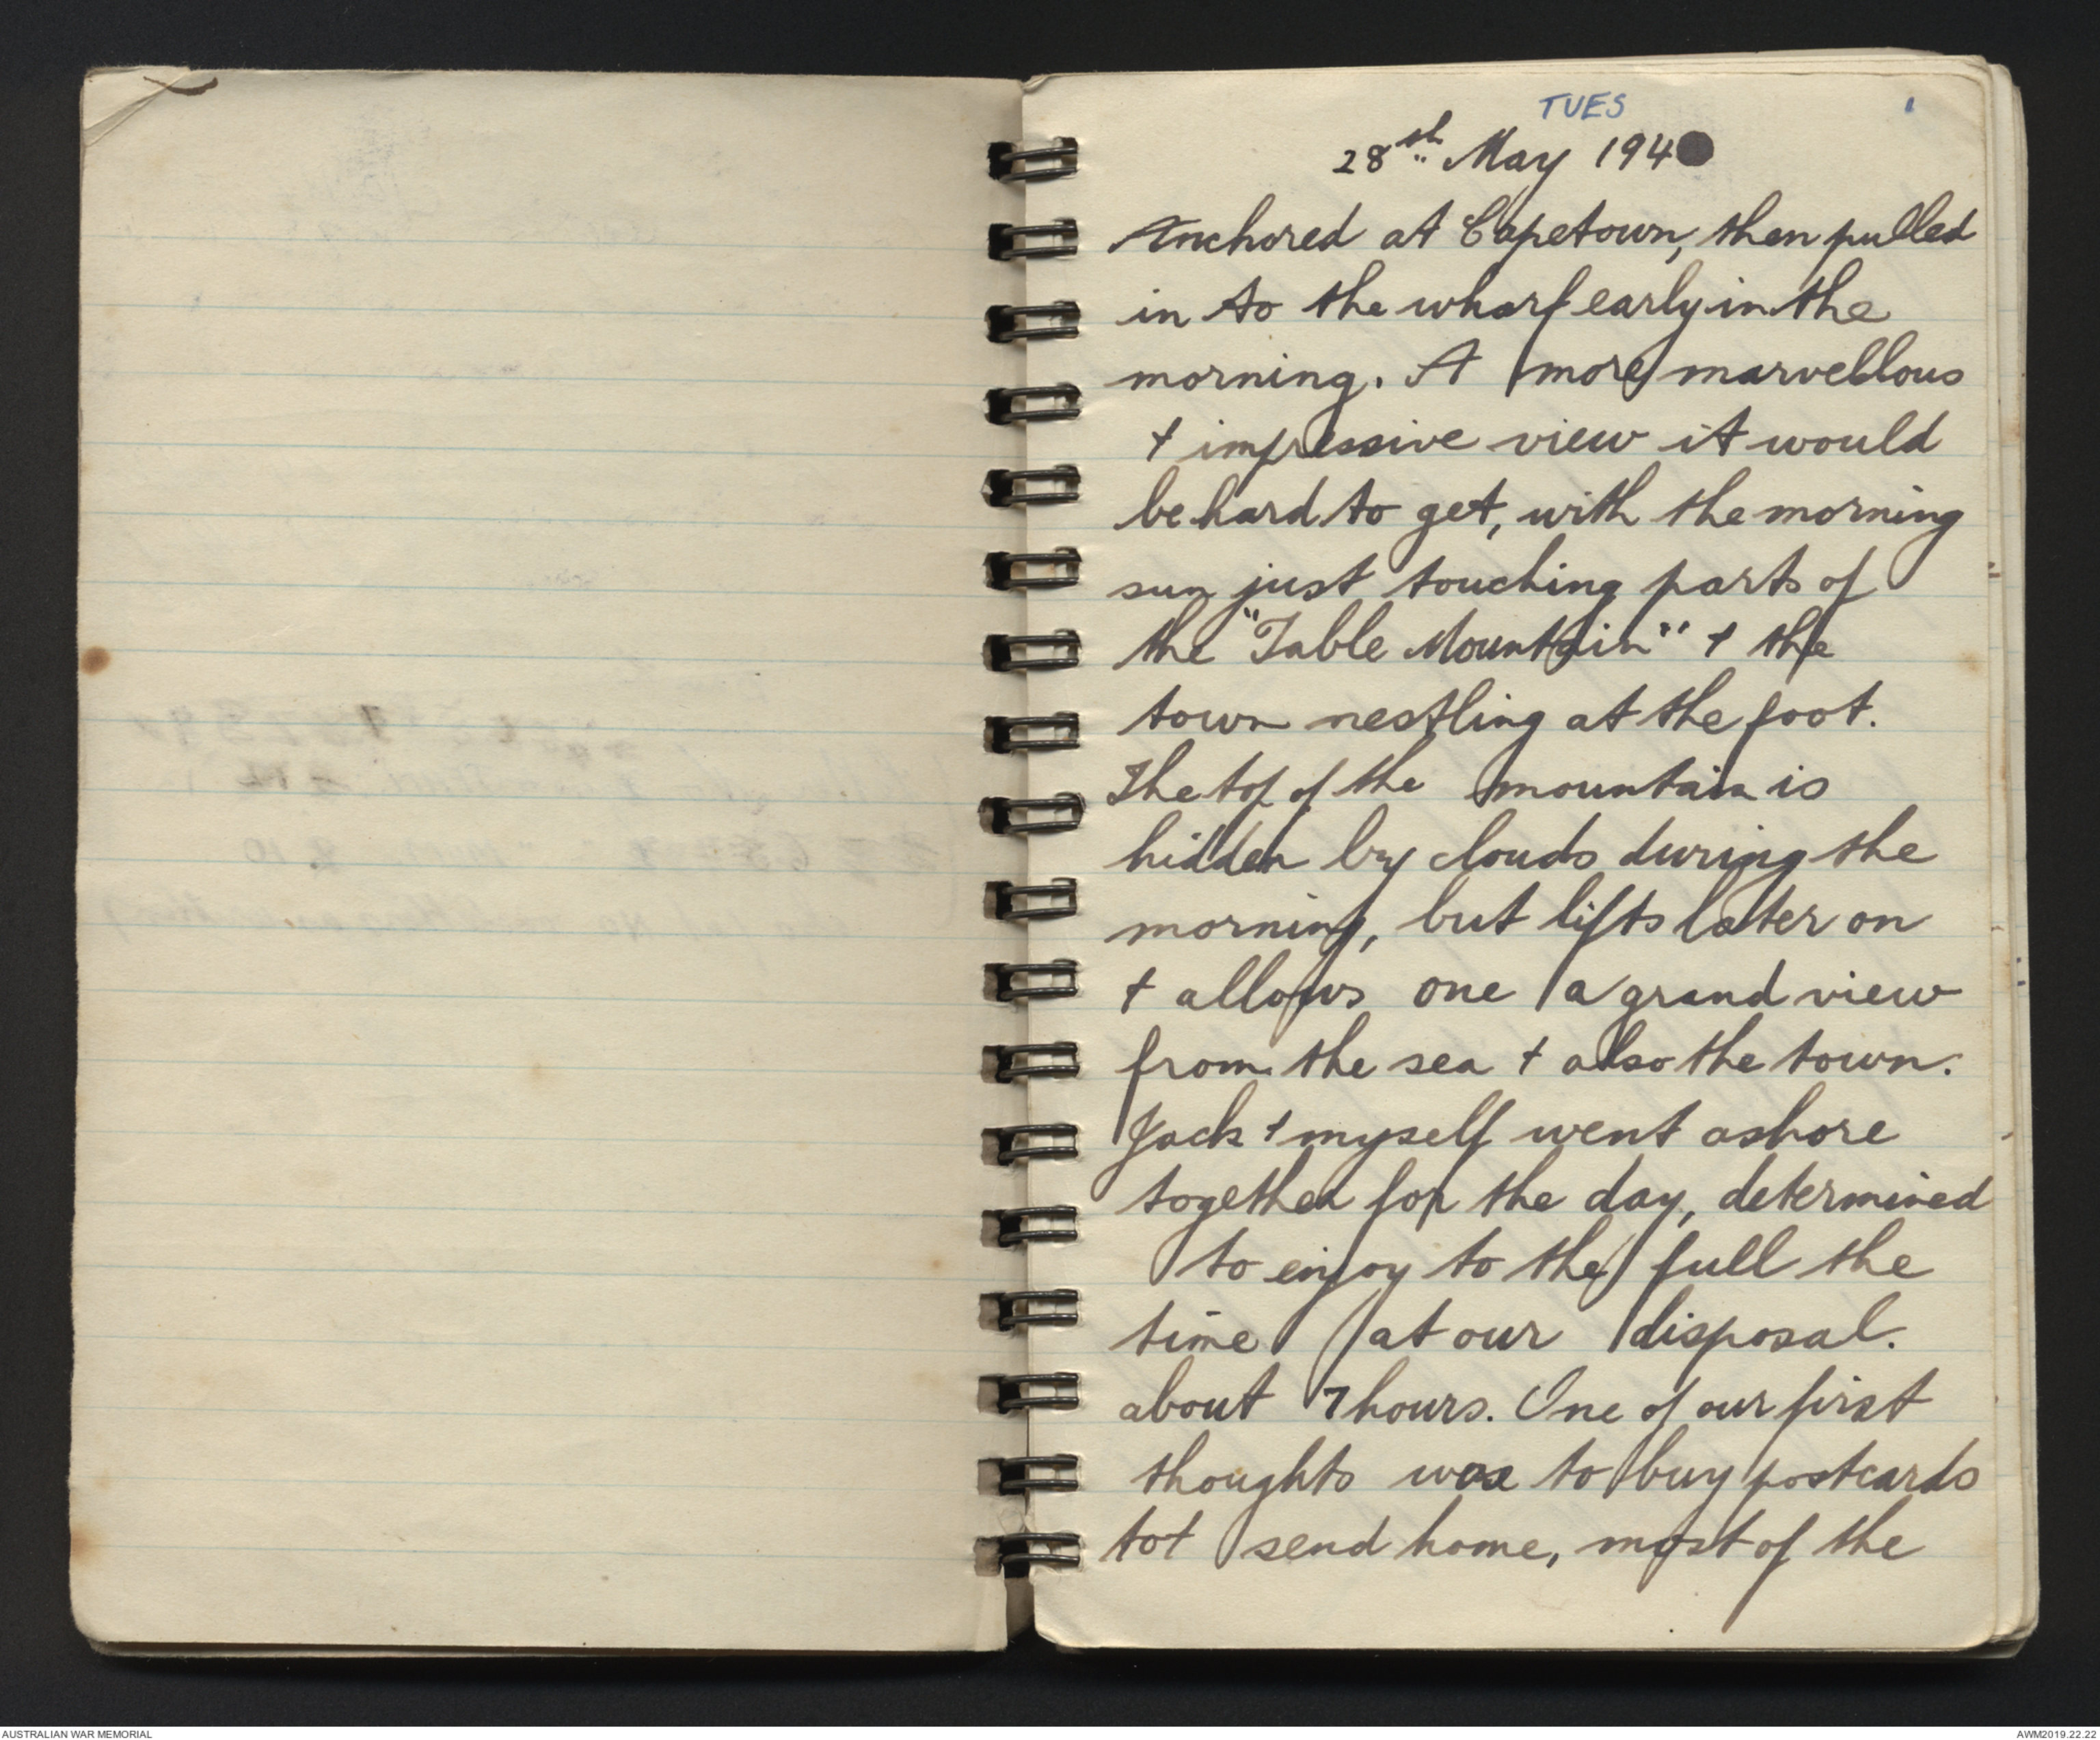 TUES
1
28th May 194
Anchored at Capetown, then pulled
in to the wharf early in the
morning. A more marvellous
+ impressive view it would
be hard to get, with the morning
sun just touching parts of
the "Table Mountain" + the
town nestling at the foot.
The top of the mountain is
hidden by clouds during the
morning, but lifts later on
+ allows one a grand view
from the sea + also the town.
Jack + myself went ashore
together for the day, determined
to enjoy to the full the
time at our disposal.
about 7 hours. One of our first
thoughts was to buy postcards
tot send home, most of the
AUSTRALIAN WAR MEMORIAL
AWM2019.22.22